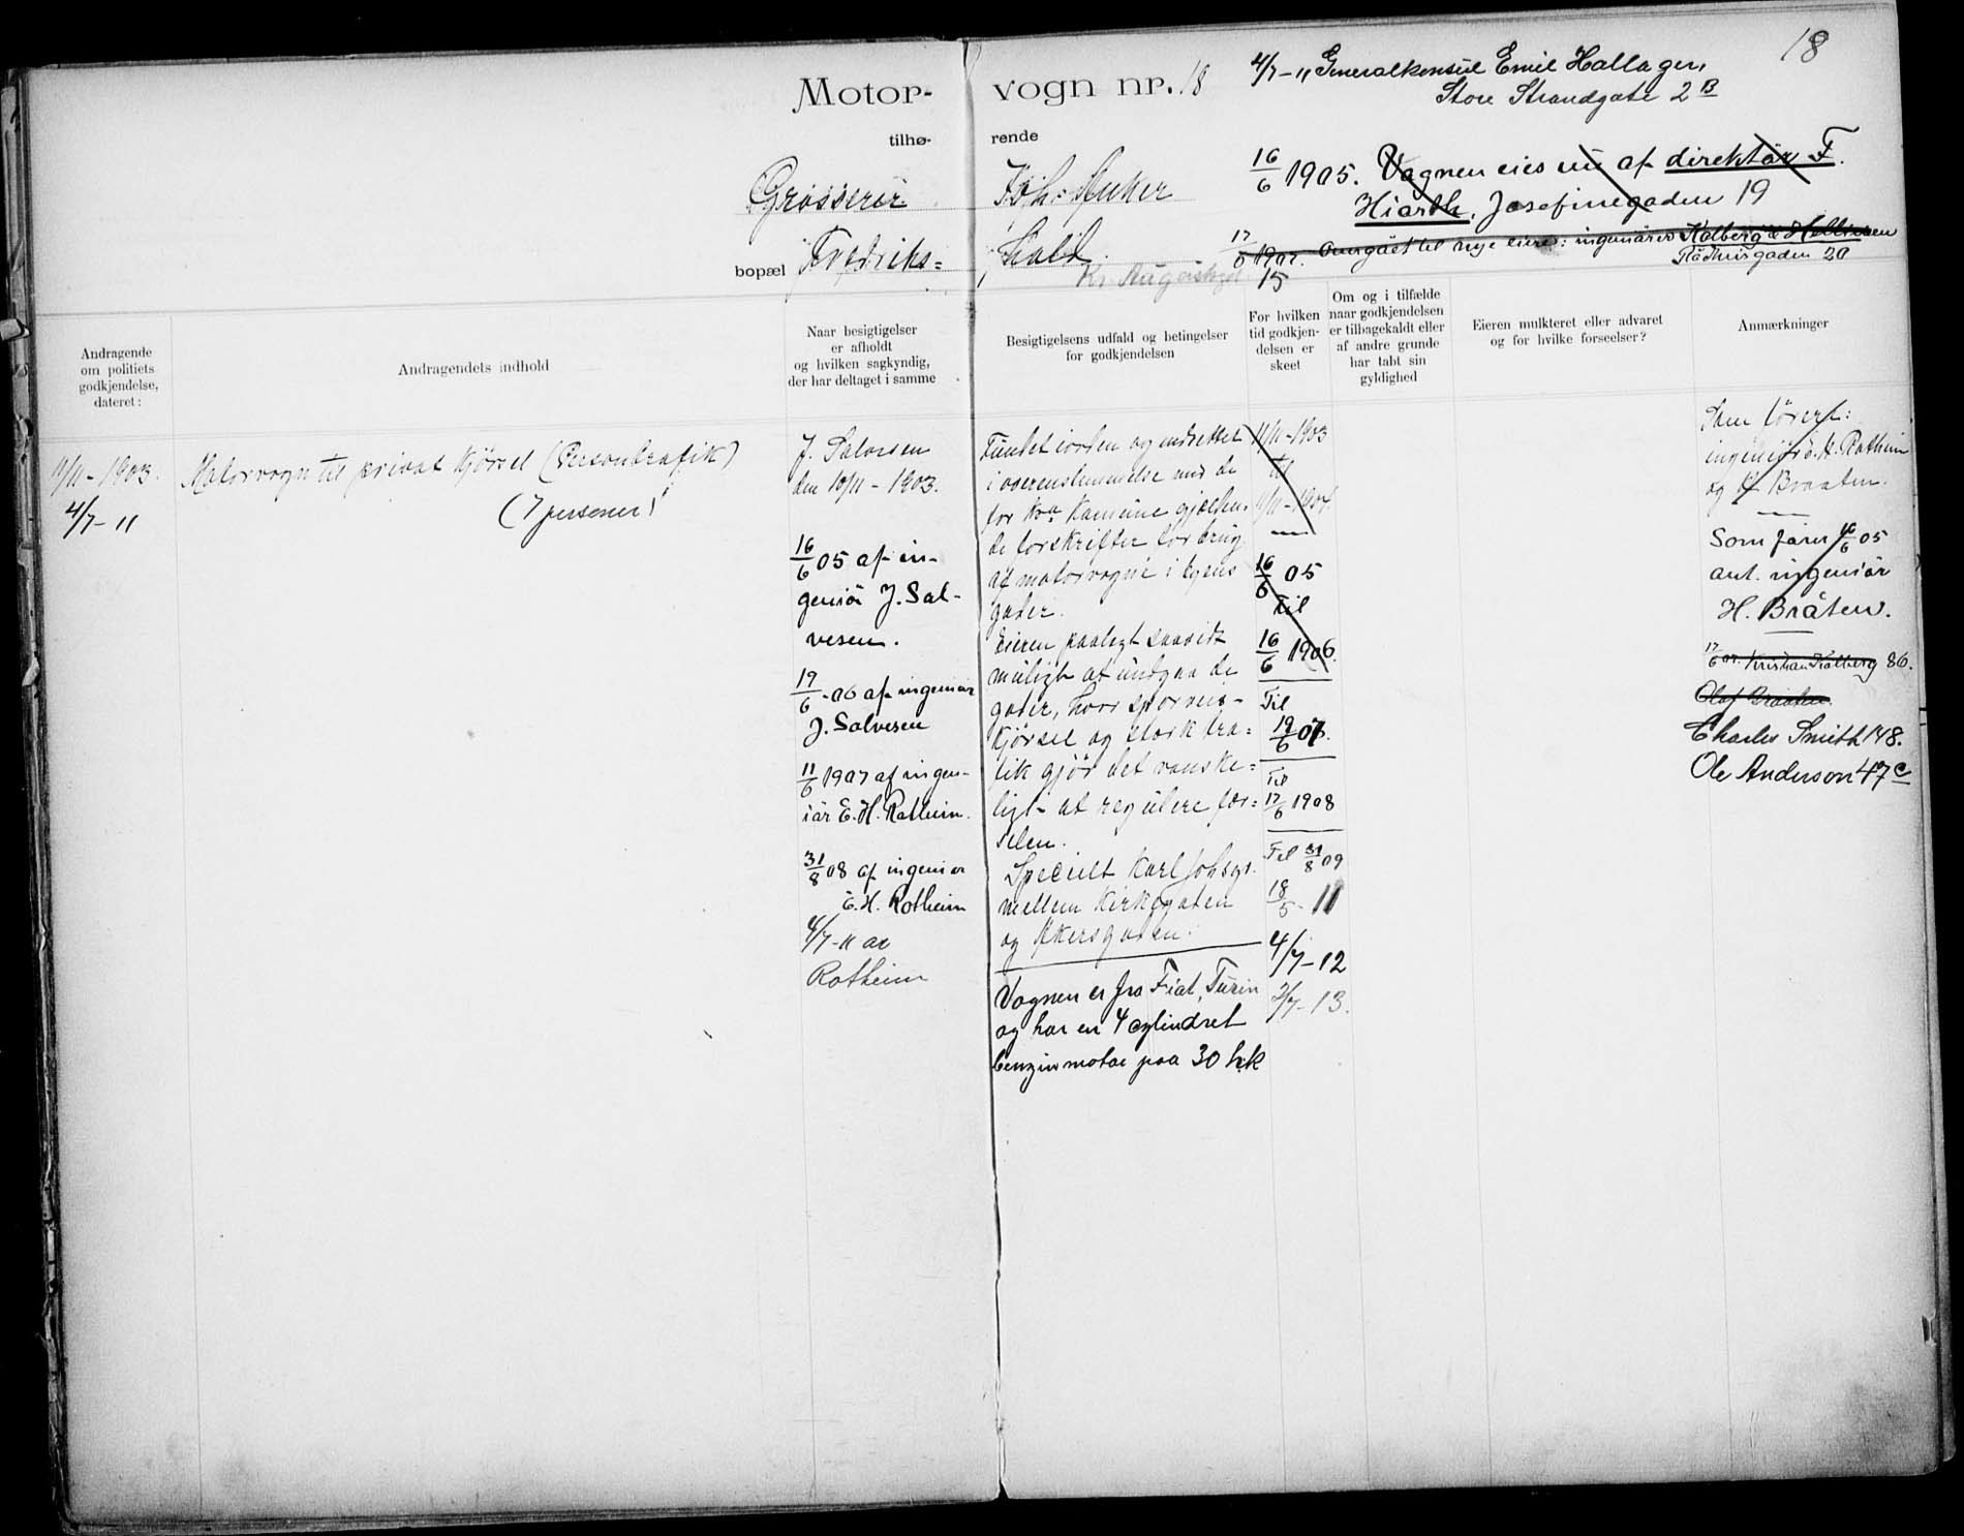 18
Motor- vogn nr. 18
4/7-11 Generalkonsul Emil Hallager,
Store Strandgate 2B
tilhø- rende
Grosserer Joh: Anker
16/6 1905. Vognen eies nu af direktør F.
Hiorth, Josefinegaden 19
bopæl Fredriks= hald
17/6 1907. Overgået til nye eiere: ingeniører Kolberg & 
Rådhusgaden 20
15
Andragende
om politiets
godkjendelse,
dateret:
Andragendets indhold
Naar besigtigelser
er afholdt
og hvilken sagkyndig,
der har deltaget i samme
Besigtigelsens udfald og betingelser
for godkjendelsen
For hvilken
tid godkjen-
delsen er
skeet
Om og i tilfælde
naar godkjendelsen
er tilbagekaldt eller
af andre grunde
har tabt sin
gyldighed
Eieren mulkteret eller advaret
og for hvilke forseelser?
Anmærkninger
11/11-1903.
4/7-11
Motorvogn til privat kjørsel (Persontrafik)
(7 personer)
J. Salvesen
den 10/11-1903.
16/6 05 af in-
geniør J. Sal-
vesen.
19/6-06 af ingeniør
J. Salvesen
11/6 1907 af ingen-
iør E. H. Rotheim.
31/8 08 af ingeniør
E. H. Rotheim
4/7-11 av
Rotheim
Fundet i orden og indrettet
i overensstemmelse med de
for Kra Kommune gjælden-
de forskrifter for brug
af motorvogne i byens
gader.
Eieren paalagt saavidt
muligt at undgaa de
gader, hvor sporveis-
kjørsel og stærk tra=
fik gjør det vanske=
ligt at regulere fær=
selen.
Specielt Karl Johsgt.
mellem Kirkegaten
og Akersgaden.
Vognen er fra Fiat, Turin
og har en 4 cylindret
benzinmotor paa 30 h.k
11/11-1903
til
11/11-1904.
16/6 05
Til
16/6 1906.
Til
19/6 07.
Til
17/6 1908
Til 31/8 09
18/5-11
4/7-12
3/7-13.
Som fører:
ingeniør E. H. Rotheim
og H. Braaten.
Som fører 16/6 05
ant. ingeniør
H. Bråten.
17/6 07. Kristian Kolberg 86.
Olaf Braaten.
Charles Smith 148.
Ole Anderson 47c